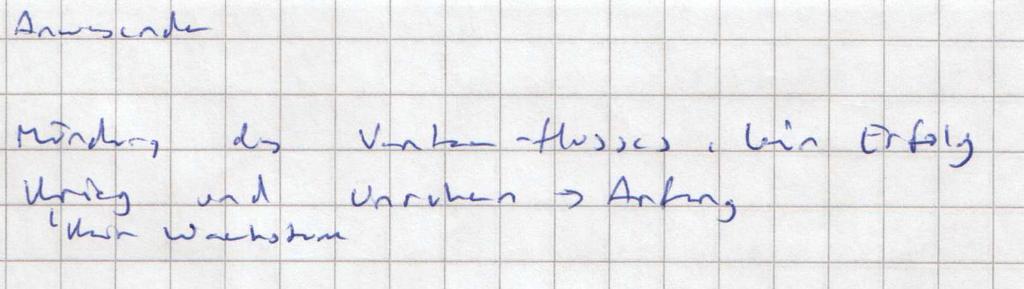 Anwesende
Mündung des flusses, kein Erfolg
Krieg und Unruhen → Anfang
kein Wachstum